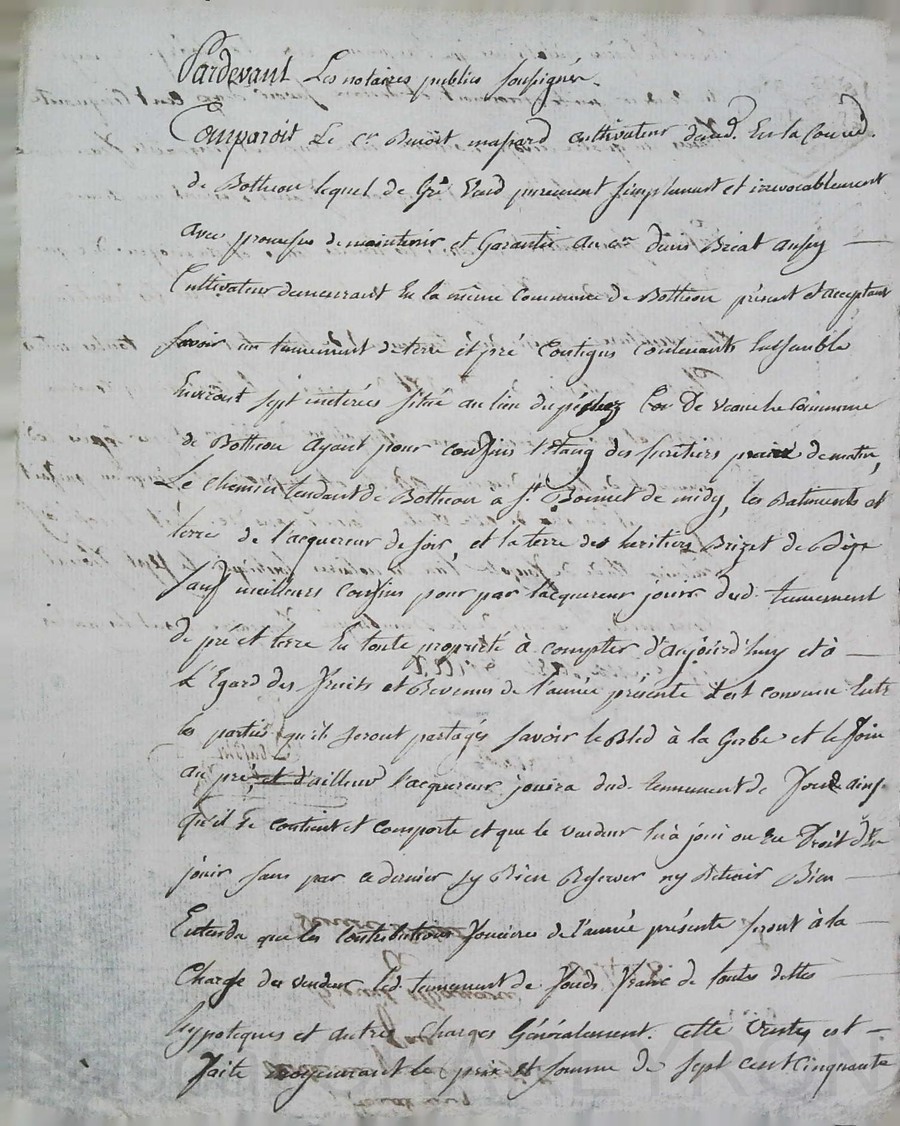 Pardevant Les notaires publics soussignés.
Comparoit Le Cen Benoit cultivateur demt. En la Comne.
de Botheon lequel de Gré Vend purement simplement et irrevocablement
avec promesse de maintenir et Garantir au Cen denis Breat aussy
Cultivateur demeurant En la même Commune de Botheon présent et acceptant
savoir un tennement de terre et pré Contigus Contenants Enssemble
Environt sept meterées situé au lieu du Commune
de Botheon ayant pour confins l'Etang des heritiers de matin,
Le Chemin tendant de Botheon a St. Bonnet de midy, les Batiments et
terre de l'acquereur de soir, et la terre des heritiers Brizet de Bize
sauf meilleurs confins pour par lacquereur jouir dud. tennement
de pré et terre En toute propriété à compter d'aujourd'huy et à
L'Egard des fruits et Revenus de l'année présente il est convenu Entre
les parties qu'ils seront partagés savoir le Bled à la Gerbe et le foin
au pré, et d'ailleur l'acquereur jouira dud. tennement de fond ainsy
qu'il se contient et comporte et que le vendeur En à joui ou Eu Droit d'En
jouir sans par ce dernier sy Rien Reserver ny Retenir Bien
Entendu que les Contributions foncieres de l'année présente seront à la
Charge du vendeur led. tennement de fonds franc de toutes dettes
hypoteques et autres Charges Généralement. Cette Ventes est
faite moyennant le prix et somme de sept cent cinquante